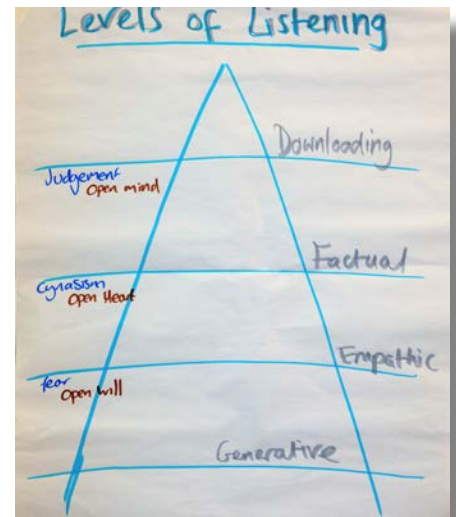 Levels of Listening
Downloading
Judgement
Open mind
Factual
Cynasism
Open Heart
Empathic
fear
Open will
Generative